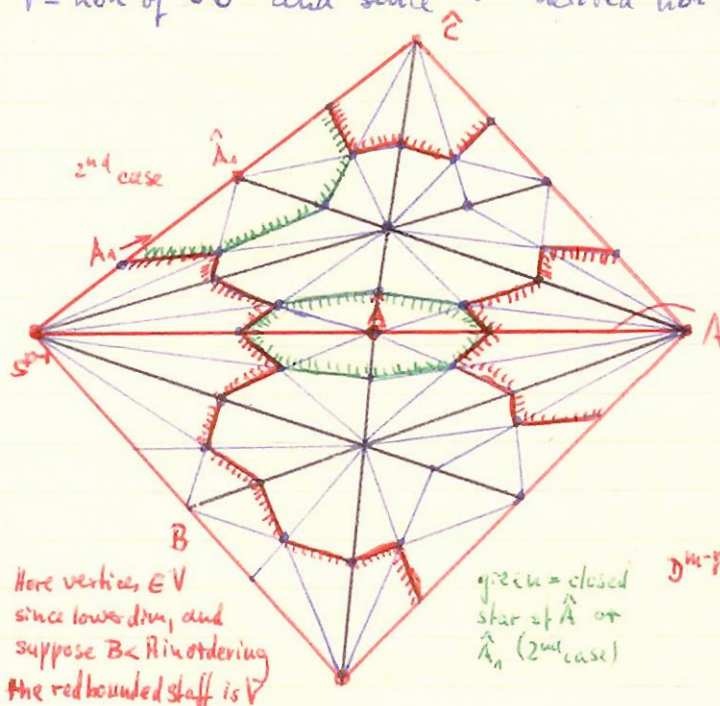 V = nbh of and since derived nbh
Ĉ
2nd case
Â₁
A₁
Â
A
B
Here vertices ∈ V
since lower dim, and
suppose B < A in ordering
the red bounded stuff is V
green = closed
star of Â or
Â₁ (2nd case)